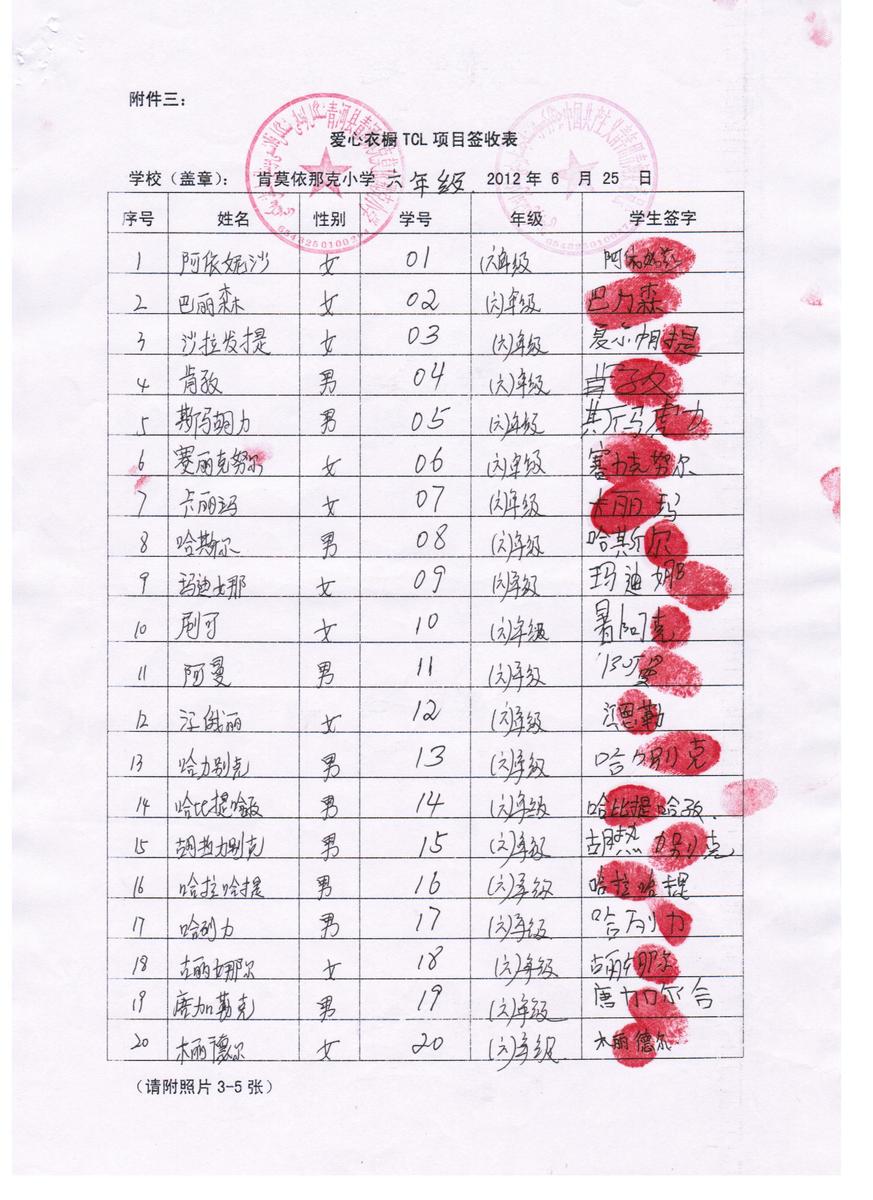 附件三:
爱心衣橱 TCL 项目签收表
学校(盖章): 肯莫依那克小学 六年级. 2012 年 6 月 25 日
序号 姓名 性别 学号 年级 学生签字
1 阿依妮沙 女 01 (六)年级 阿依妮莎
2 巴丽森 女 02 (六)年级 巴力森
3 沙拉发提 女 03 (六)年级 夏尔帕提
4 肯孜 男 04 (六)年级 肯孜
5 斯玛胡力 男 05 (六)年级 斯玛胡力
6 赛丽克努尔 女 06 (六)年级 赛力克努尔
7 卡丽玛 女 07 (六)年级 卡丽玛
8 哈斯尔 男 08 (六)年级 哈斯尔
9 玛迪娜 女 09 (六)年级 玛迪娜
10 女 10 (六)年级
11 阿曼 男 11 (六)年级 阿曼
12 江俄丽 女 12 (六)年级 江恩勒
13 哈力别克 男 13 (六)年级 哈力别克
14 哈比提哈孜 男 14 (六)年级 哈比提哈孜.
15 胡热力别克 男 15 (六)年级 胡热力别克
16 哈拉哈提 男 16 (六)年级 哈拉哈提
17 哈列力 男 17 (六)年级 哈列力
18 古丽娜尔 女 18 (六)年级 古丽娜尔
19 唐加勒克 男 19 (六)年级 唐加尔合
20 木丽德尔 女 20 (六)年级 木丽德尔
(请附照片 3-5 张)